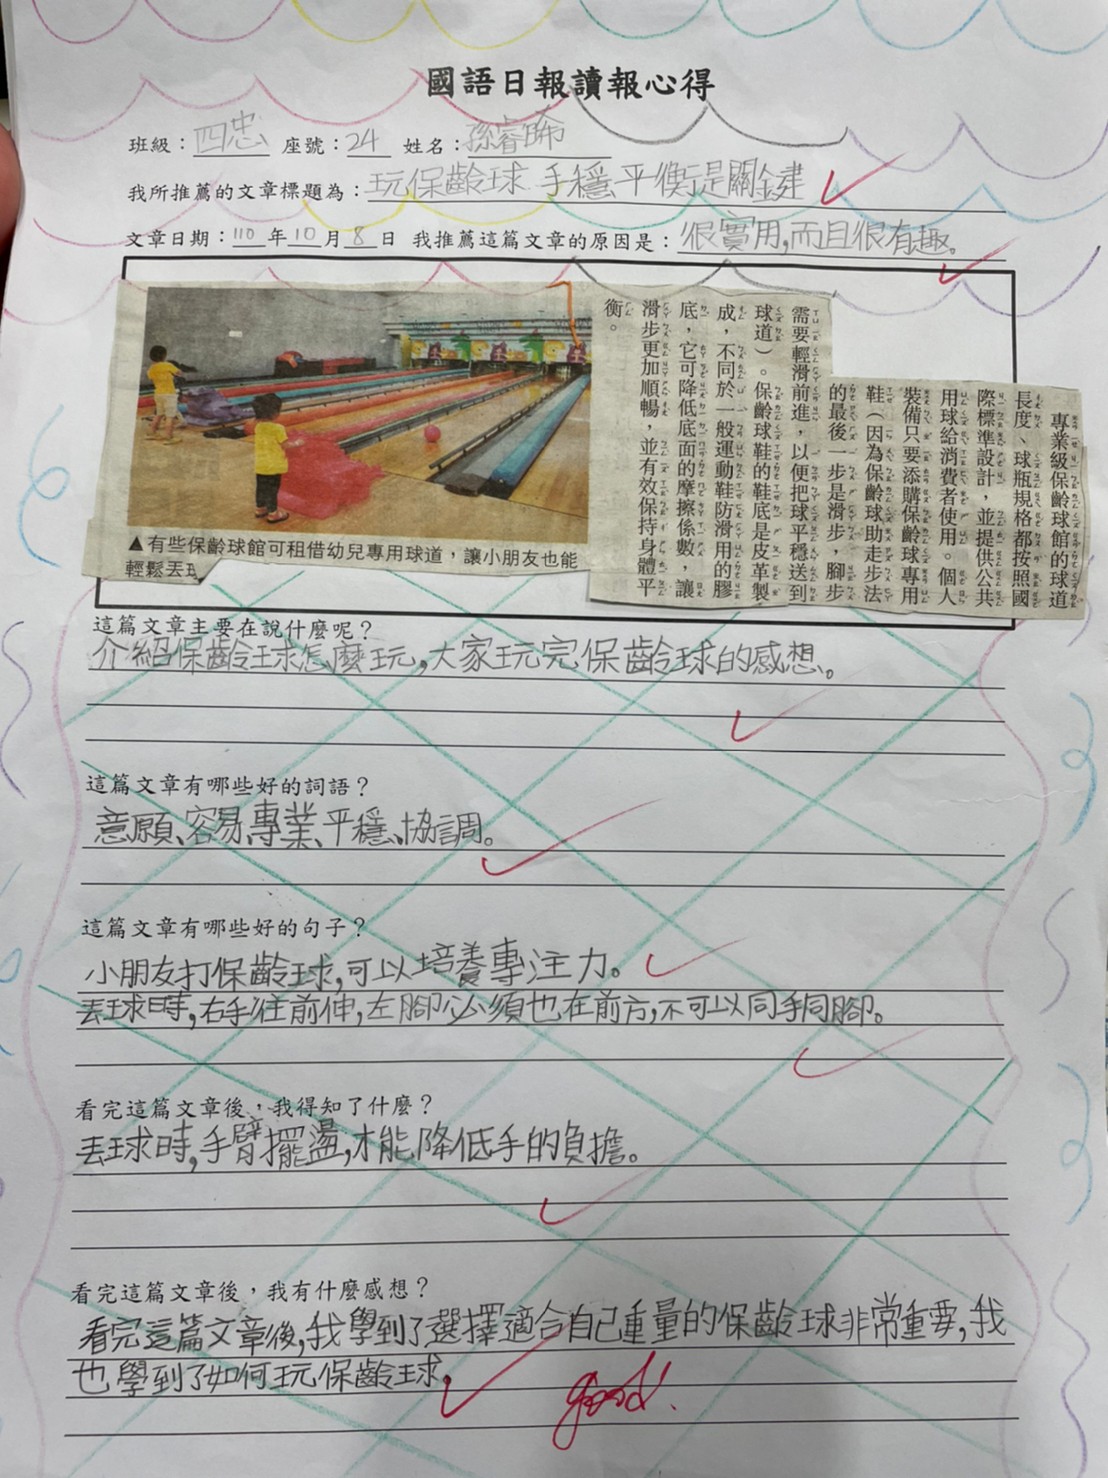 國語日報讀報心得
班級：四忠 座號：24 姓名：孫睿
我所推薦的文章標題為：玩保齡球 手穩平衡是關鍵
文章日期：110年10月8日 我推薦這篇文章的原因是：很實用,而且很有趣。
專業級保齡球館的球道
長度、球瓶規格都按照國
際標準設計，並提供公共
用球給消費者使用。個人
裝備只要添購保齡球專用
鞋（因為保齡球助走步法
的最後一步是滑步，腳步
需要輕滑前進，以便把球平穩送到
球道）。保齡球鞋的鞋底是皮革製
成，不同於一般運動鞋防滑用的膠
底，它可降低底面的摩擦係數，讓
滑步更加順暢，並有效保持身體平
衡。
▲有些保齡球館可租借幼兒專用球道，讓小朋友也能
輕鬆丟球
這篇文章主要在說什麼呢？
介紹保齡球怎麼玩,大家玩完保齡球的感想。
這篇文章有哪些好的詞語？
意願、容易、專業、平穩、協調。
這篇文章有哪些好的句子？
小朋友打保齡球,可以培養專注力。
丟球時,右手往前伸,左腳必須也在前方,不可以同手同腳。
看完這篇文章後，我得知了什麼？
丟球時,手臂擺盪,才能降低手的負擔。
看完這篇文章後，我有什麼感想？
看完這篇文章後,我學到了選擇適合自己重量的保齡球非常重要,我
也學到了如何玩保齡球。
good!